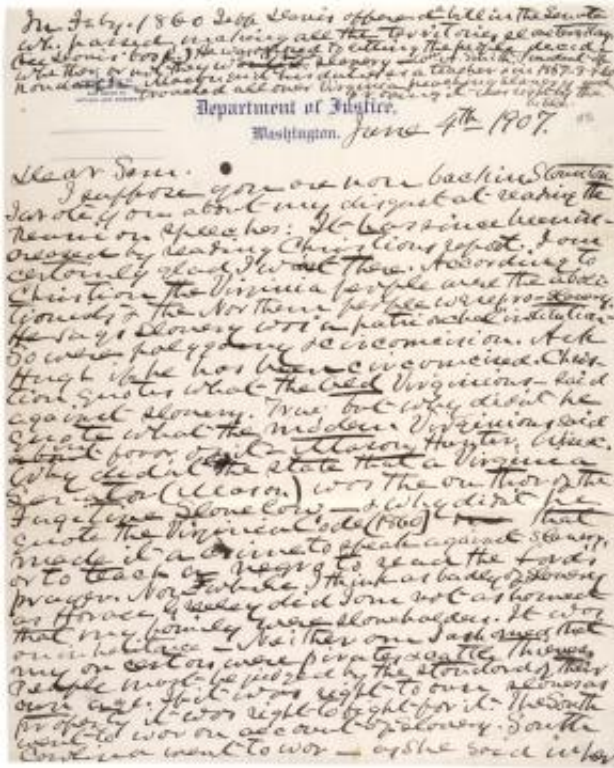 In Feby. 1860 Jeff Davis offered a bill in the Senate
wh. passed, making all the territories slave territory.
(See Davis' book.) He was opposed to letting the people decide
whether or not they would have slavery
his duties as a teacher in 1857-8-9
preached all over Virginia
Department of Justice,
Washington. June 4th 1907.
Dear Sam.
I suppose you are now back in Staunton
I wrote you about my disgust at reading the
Reunion speeches: It has since been in-
creased by reading Christians report. I am
certainly glad I wasnt there. According to
Christian the Virginia people were the aboli
tionists & the Northern people were pro-slavery
He says slavery was "a patriarchal" institution
So were polygamy & circumcision. Ask
Hugh if he has been circumcised. Chris-
tian quotes what the old Virginians said
against slavery. True but why didnt he
quote what the modern Virginians said
in favor of it Mason, Hunter, Wise &c
Why didnt he state that a Virginia
Senator (Mason) was the author of the
Fugitive Slave law & why didnt he
quote the Virginia Code (1860) that
made it a crime to speak against slavery,
or to teach a negro to read the Lord's
prayer. Now while I think as badly of slavery
as Horace Greeley did I am not ashamed
that my family were slaveholders. It was
our inheritance Neither am I ashamed that
my ancestors were pirates & cattle thieves.
People must be judged by the standard of their
own age. If it was right to own slaves as
property it was right to fight for it. The South
went to war on account of slavery. South
Carolina went to war as she said in her